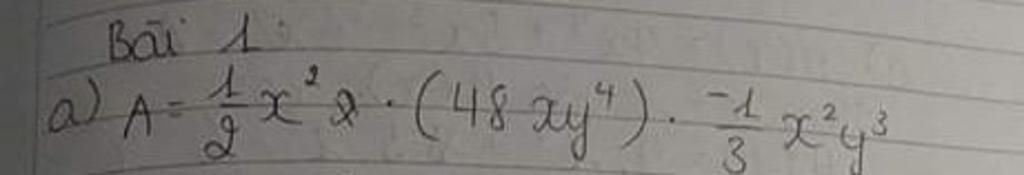 Bài 1:
a) A = 1/2 x² . (48 xy⁴) . -1/3 x²y³